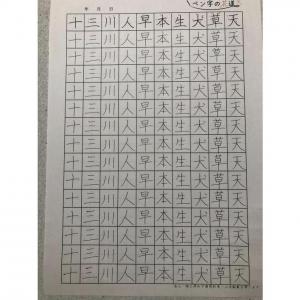 ペン字の
年 月 日
十三川人早本生犬草天
十三川人早本生犬草天
十三川人早本生犬草天
十三川人早本生犬草天
十三川人早本生犬草天
十三川人早本生犬草天
十三川人早本生犬草天
十三川人早本生犬草天
十三川人早本生犬草天
十三川人早本生犬草天
十三川人早本生犬草天
十三川人早本生犬草天
十三川人早本生犬草天
十三川人早本生犬草天
十三川人早本生犬草天